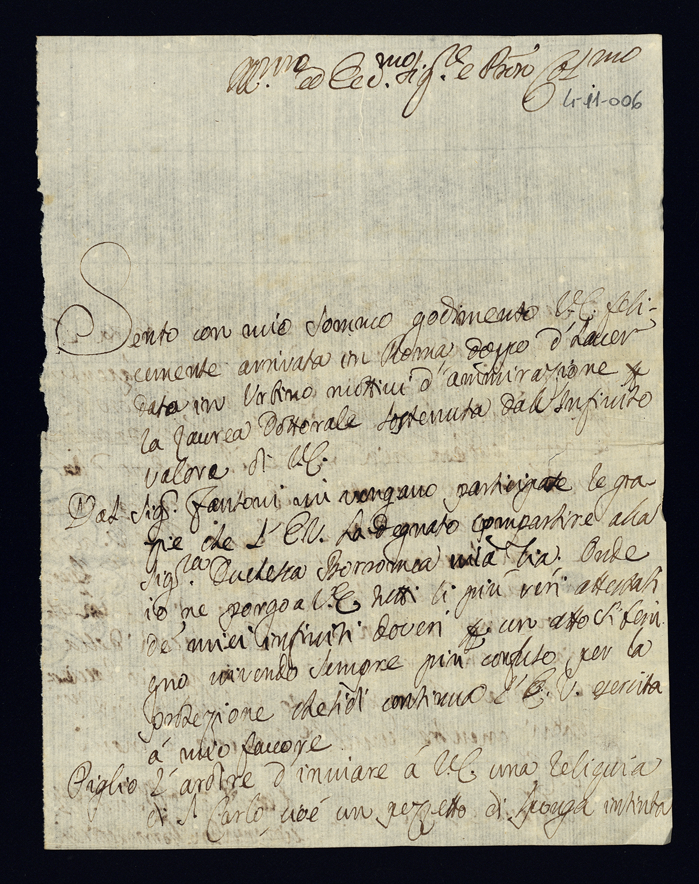 Ill.mo ed Ecc.mo Sig.re e Pròn Col.mo
4-11-006
Sento con mio sommo godimento V.E. feli-
cemente arrivata in Roma doppo d'haver
data in Urbino mottivi d'ammirazione p
la laurea Dottorale sostenuta dall'Infinito
valore di V.E.
Dal Sig.r Fantoni mi vengano participate le gra-
zie che l'E.V. ha degnato compartire alla
Sig.ra Duchessa Borromea mia Zia. Onde
io ne porgo a V.E. tutti li più veri attestati
de miei infiniti doveri p un atto sì beni-
gno vivendo sempre più confuso per la
protezione che di continuo l'E.V. esercita
à mio favore
Piglio l'ardire d'inviare à V.E. una Reliquia
di S. Carlo cioè un pezzetto di sponga intinta